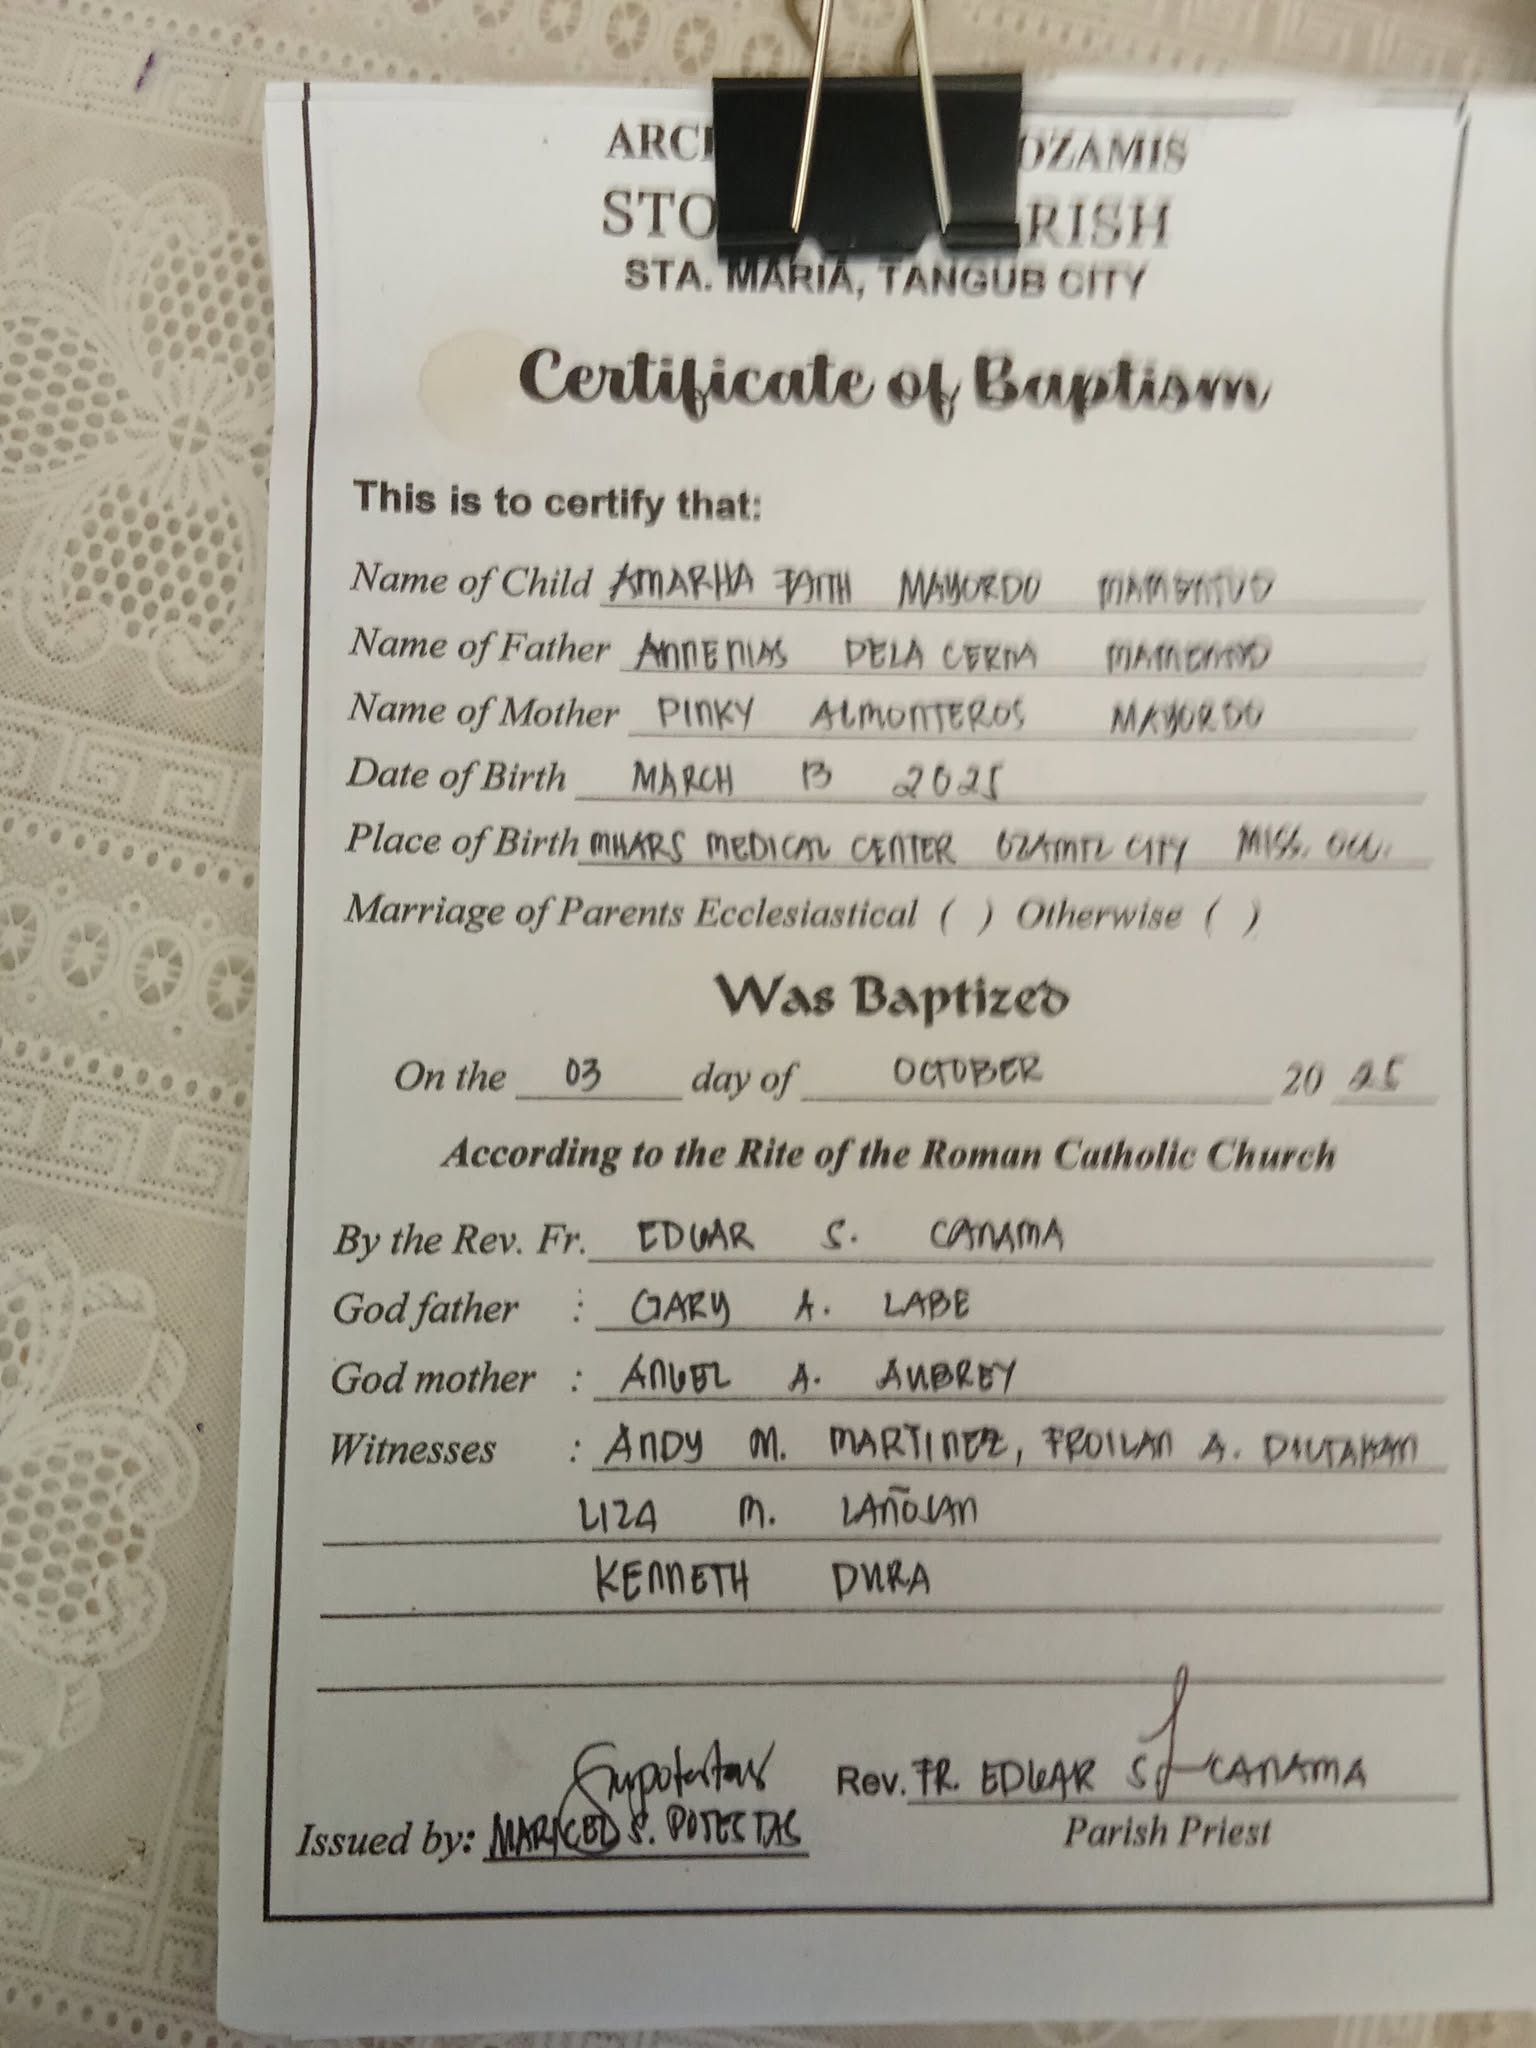 ARC OZAMIS
STO RISH
STA. MARIA, TANGUB CITY
Certificate of Baptism
This is to certify that:
Name of Child AMARHA FAITH MAYORDO MAMENTUO
Name of Father ANNENIAS DELA CERNA MAMENTUO
Name of Mother PINKY ALMONTEROS MAYORDO
Date of Birth MARCH 13 2025
Place of Birth MHARS MEDICAL CENTER OZAMIZ CITY MISS. OCC.
Marriage of Parents Ecclesiastical ( ) Otherwise ( )
Was Baptized
On the 03 day of OCTOBER 20 25
According to the Rite of the Roman Catholic Church
By the Rev. Fr. EDGAR S. CANAMA
God father : GARY A. LABE
God mother : ANGEL A. AUBREY
Witnesses : ANDY M. MARTINEZ, FROILAN A.
LIZA M.
KENNETH DURA
Rev. FR. EDGAR S. CANAMA
Issued by: MARICEL S. POTESTAS
Parish Priest